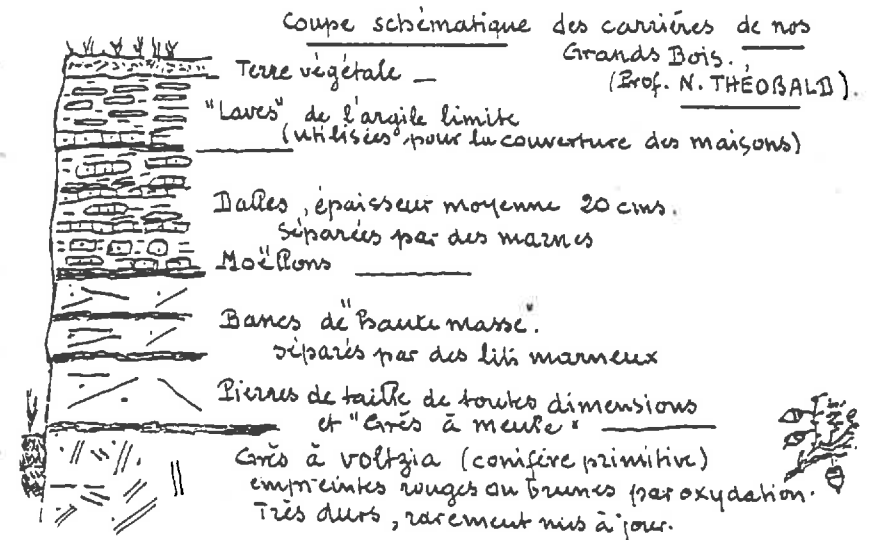 Coupe schématique des carrières de nos
Grands Bois.
(Prof. N. THÉOBALD).
Terre végétale _
"Laves" de l'argile limite
(utilisées pour la couverture des maisons)
Dalles, épaisseur moyenne 20 cms.
séparées par des marnes
Moëllons
Bancs de "haute masse".
séparés par des lits marneux
Pierres de taille de toutes dimensions
et "Grès à meule"
Grès à voltzia (conifère primitive)
empreintes rouges ou brunes par oxydation.
Très durs, rarement mis à jour.